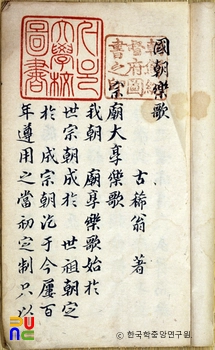 國朝樂歌
古稀翁 著
朝鮮總
督府圖
書之
宗廟大享樂歌
我朝 廟享樂歌始於
世宗朝成於 世祖朝定
於 成宗朝迄于今屢百
年遵用之當初定制只以
大學校
圖書
© 한국학중앙연구원